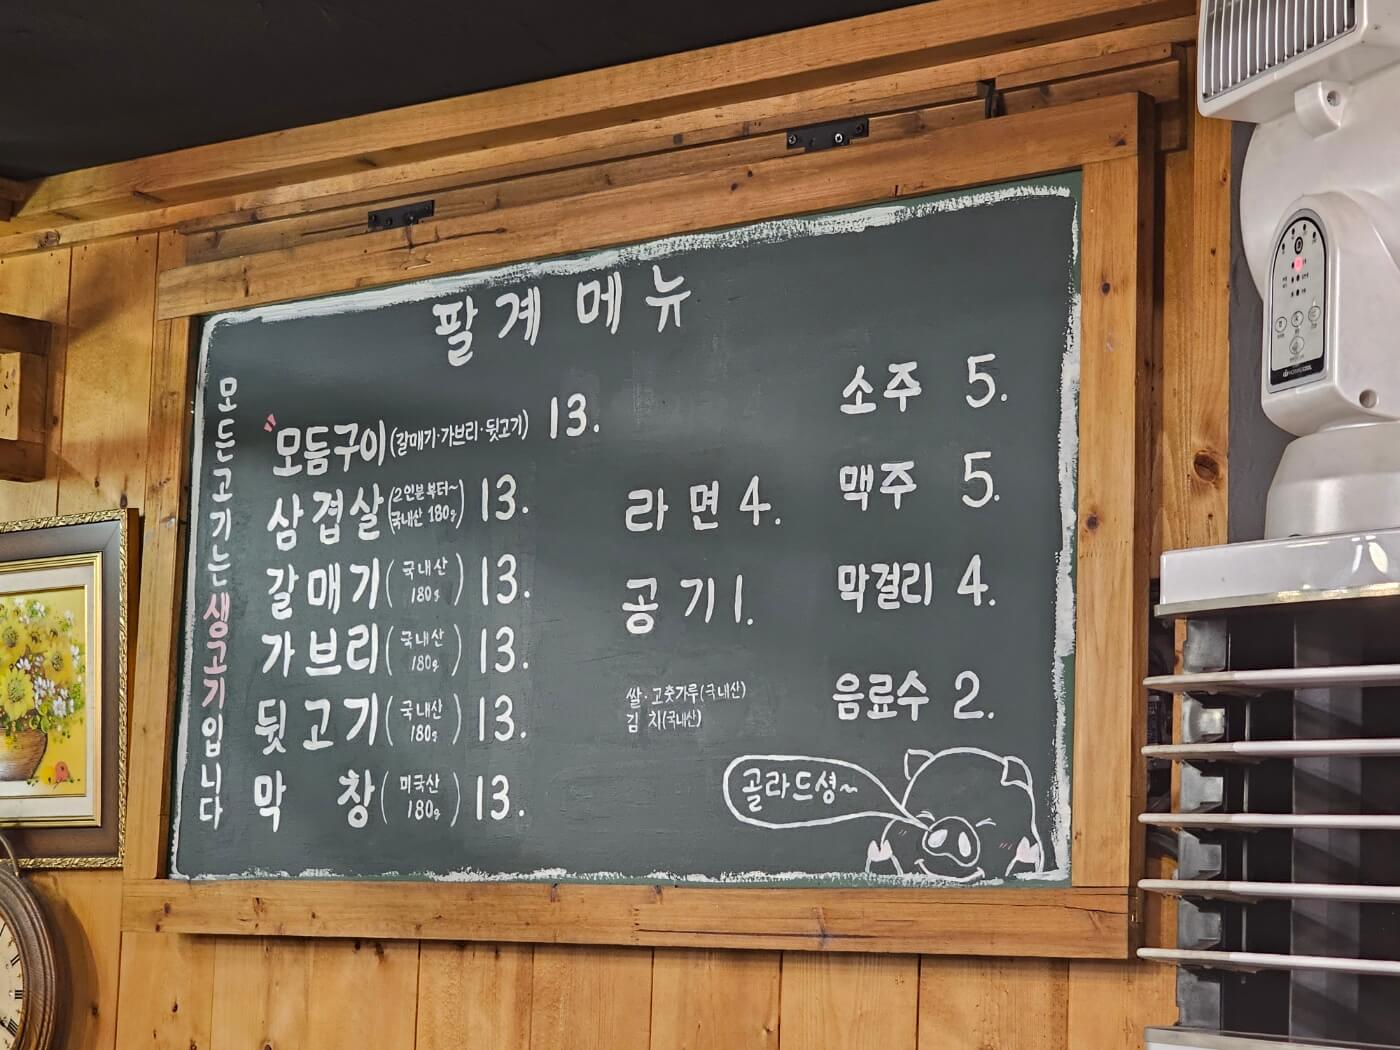 팔계 메뉴
모든고기는생고기입니다
모듬구이(갈매기·가브리·뒷고기) 13.
삼겹살(2인분부터~ 국내산 180g) 13.
갈매기(국내산 180g) 13.
가브리(국내산 180g) 13.
뒷고기(국내산 180g) 13.
막창(미국산 180g) 13.
라면 4.
공기 1.
쌀·고춧가루(국내산)
김치(국내산)
소주 5.
맥주 5.
막걸리 4.
음료수 2.
골라드셩~